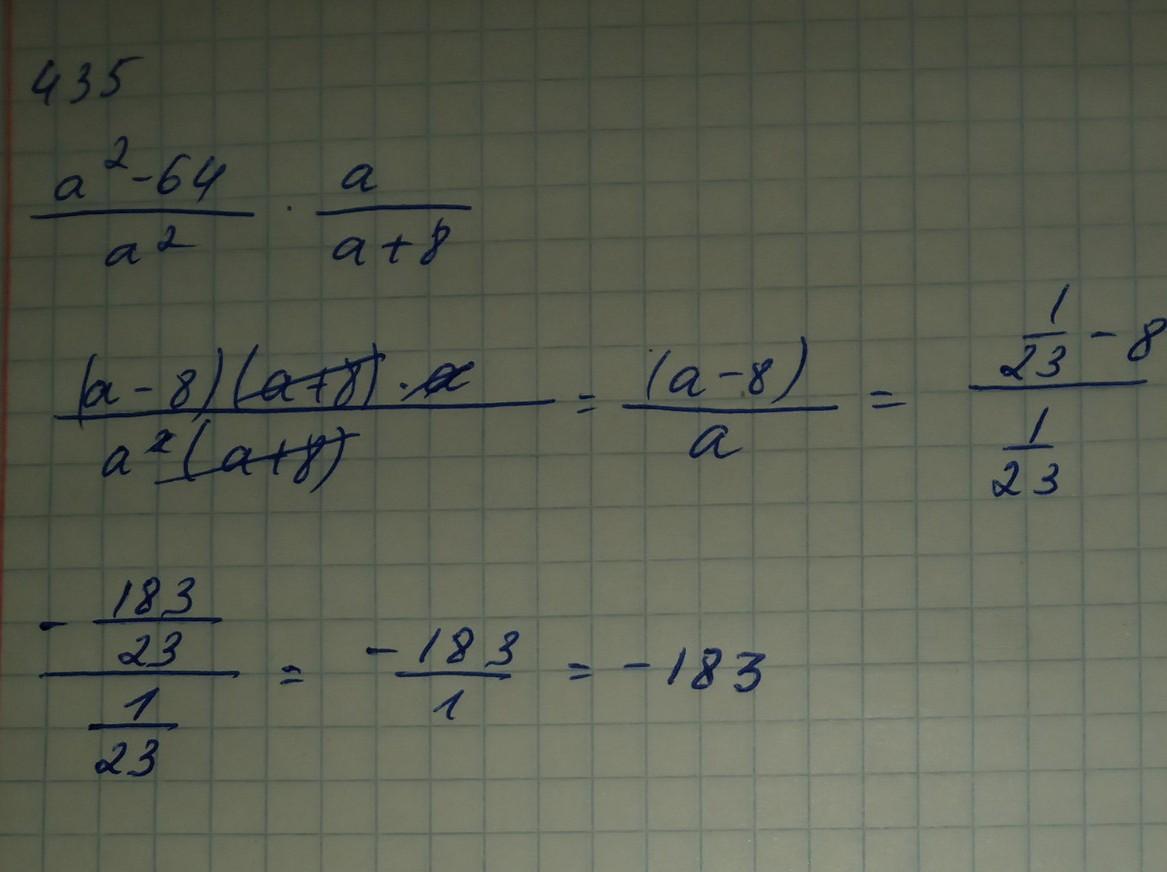 435
(a² - 64)/a² · a/(a + 8)
((a - 8)(a + 8) · a)/(a²(a + 8)) = (a - 8)/a = (1/23 - 8)/(1/23)
(-183/23)/(1/23) = -183/1 = -183